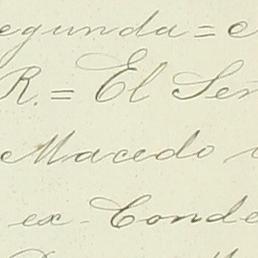 egunda = e
R. = El Señ
Macedo
ex-Conde